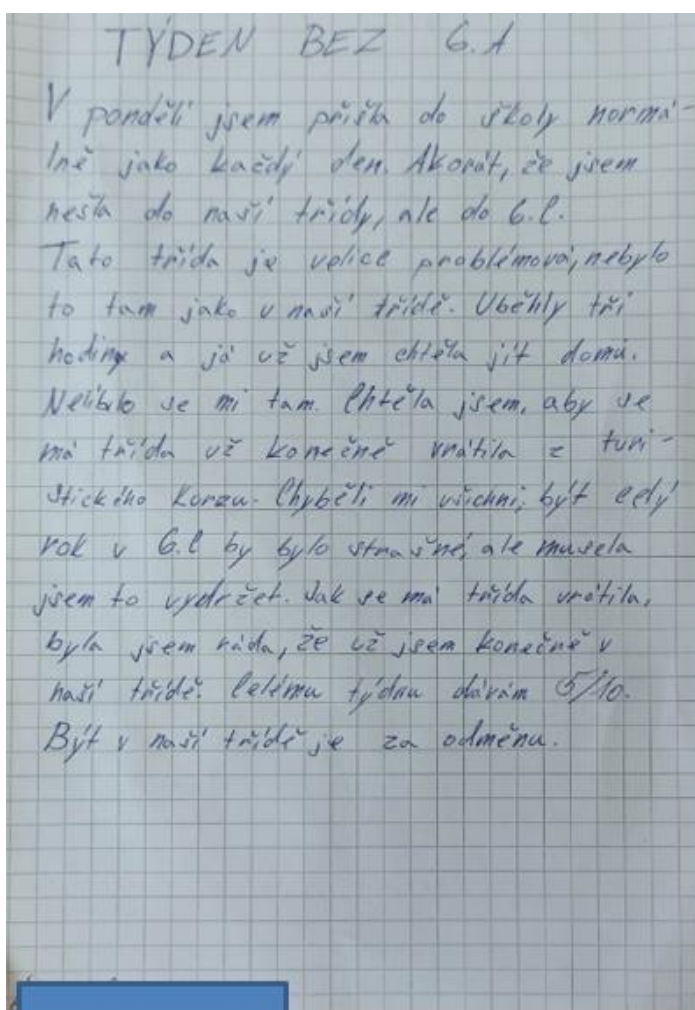 TÝDEN BEZ 6.A
V pondělí jsem přišla do školy normá-
lně jako každý den. Akorát, že jsem
nešla do naší třídy, ale do 6.C.
Tato třída je velice problémová, nebylo
to tam jako v naší třídě. Uběhly tři
hodiny a já už jsem chtěla jít domů.
Nelíbilo se mi tam. Chtěla jsem, aby se
má třída už konečně vrátila z turi-
stického korzu. Chyběli mi všichni, být celý
rok v 6.C by bylo strašné, ale musela
jsem to vydržet. Jak se má třída vrátila,
byla jsem ráda, že už jsem konečně v
naší třídě. Celému týdnu dávám 5/10.
Být v naší třídě je za odměnu.